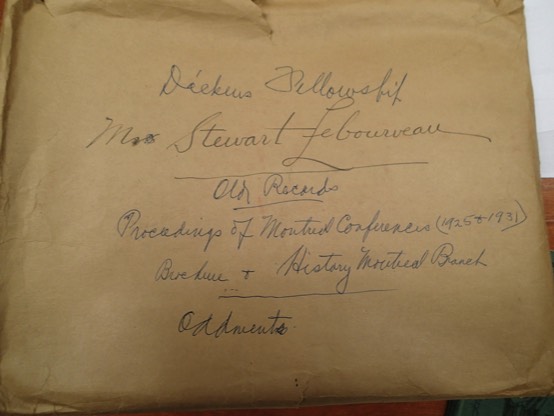 Dickens Fellowship
Mrs Stewart Lebourveau
Old Records
Proceedings of Montreal Conferences (1925 & 1931)
Brochure & History Montreal Branch
Oddments